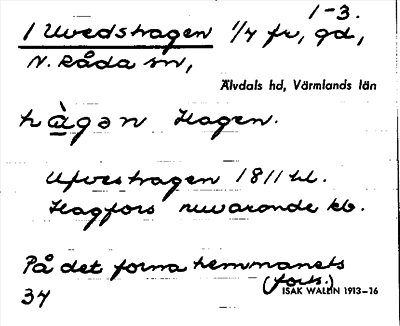 1-3.
1 Uvedshagen 1/4 fr, gd,
N. Råda sn,
Älvdals hd, Värmlands län
hàgən Hagen.
Ufveshagen 1811 hl.
Hagfors nuvarande kb.
På det forna hemmanets
(forts.)
34
ISAK WALLIN 1913–16